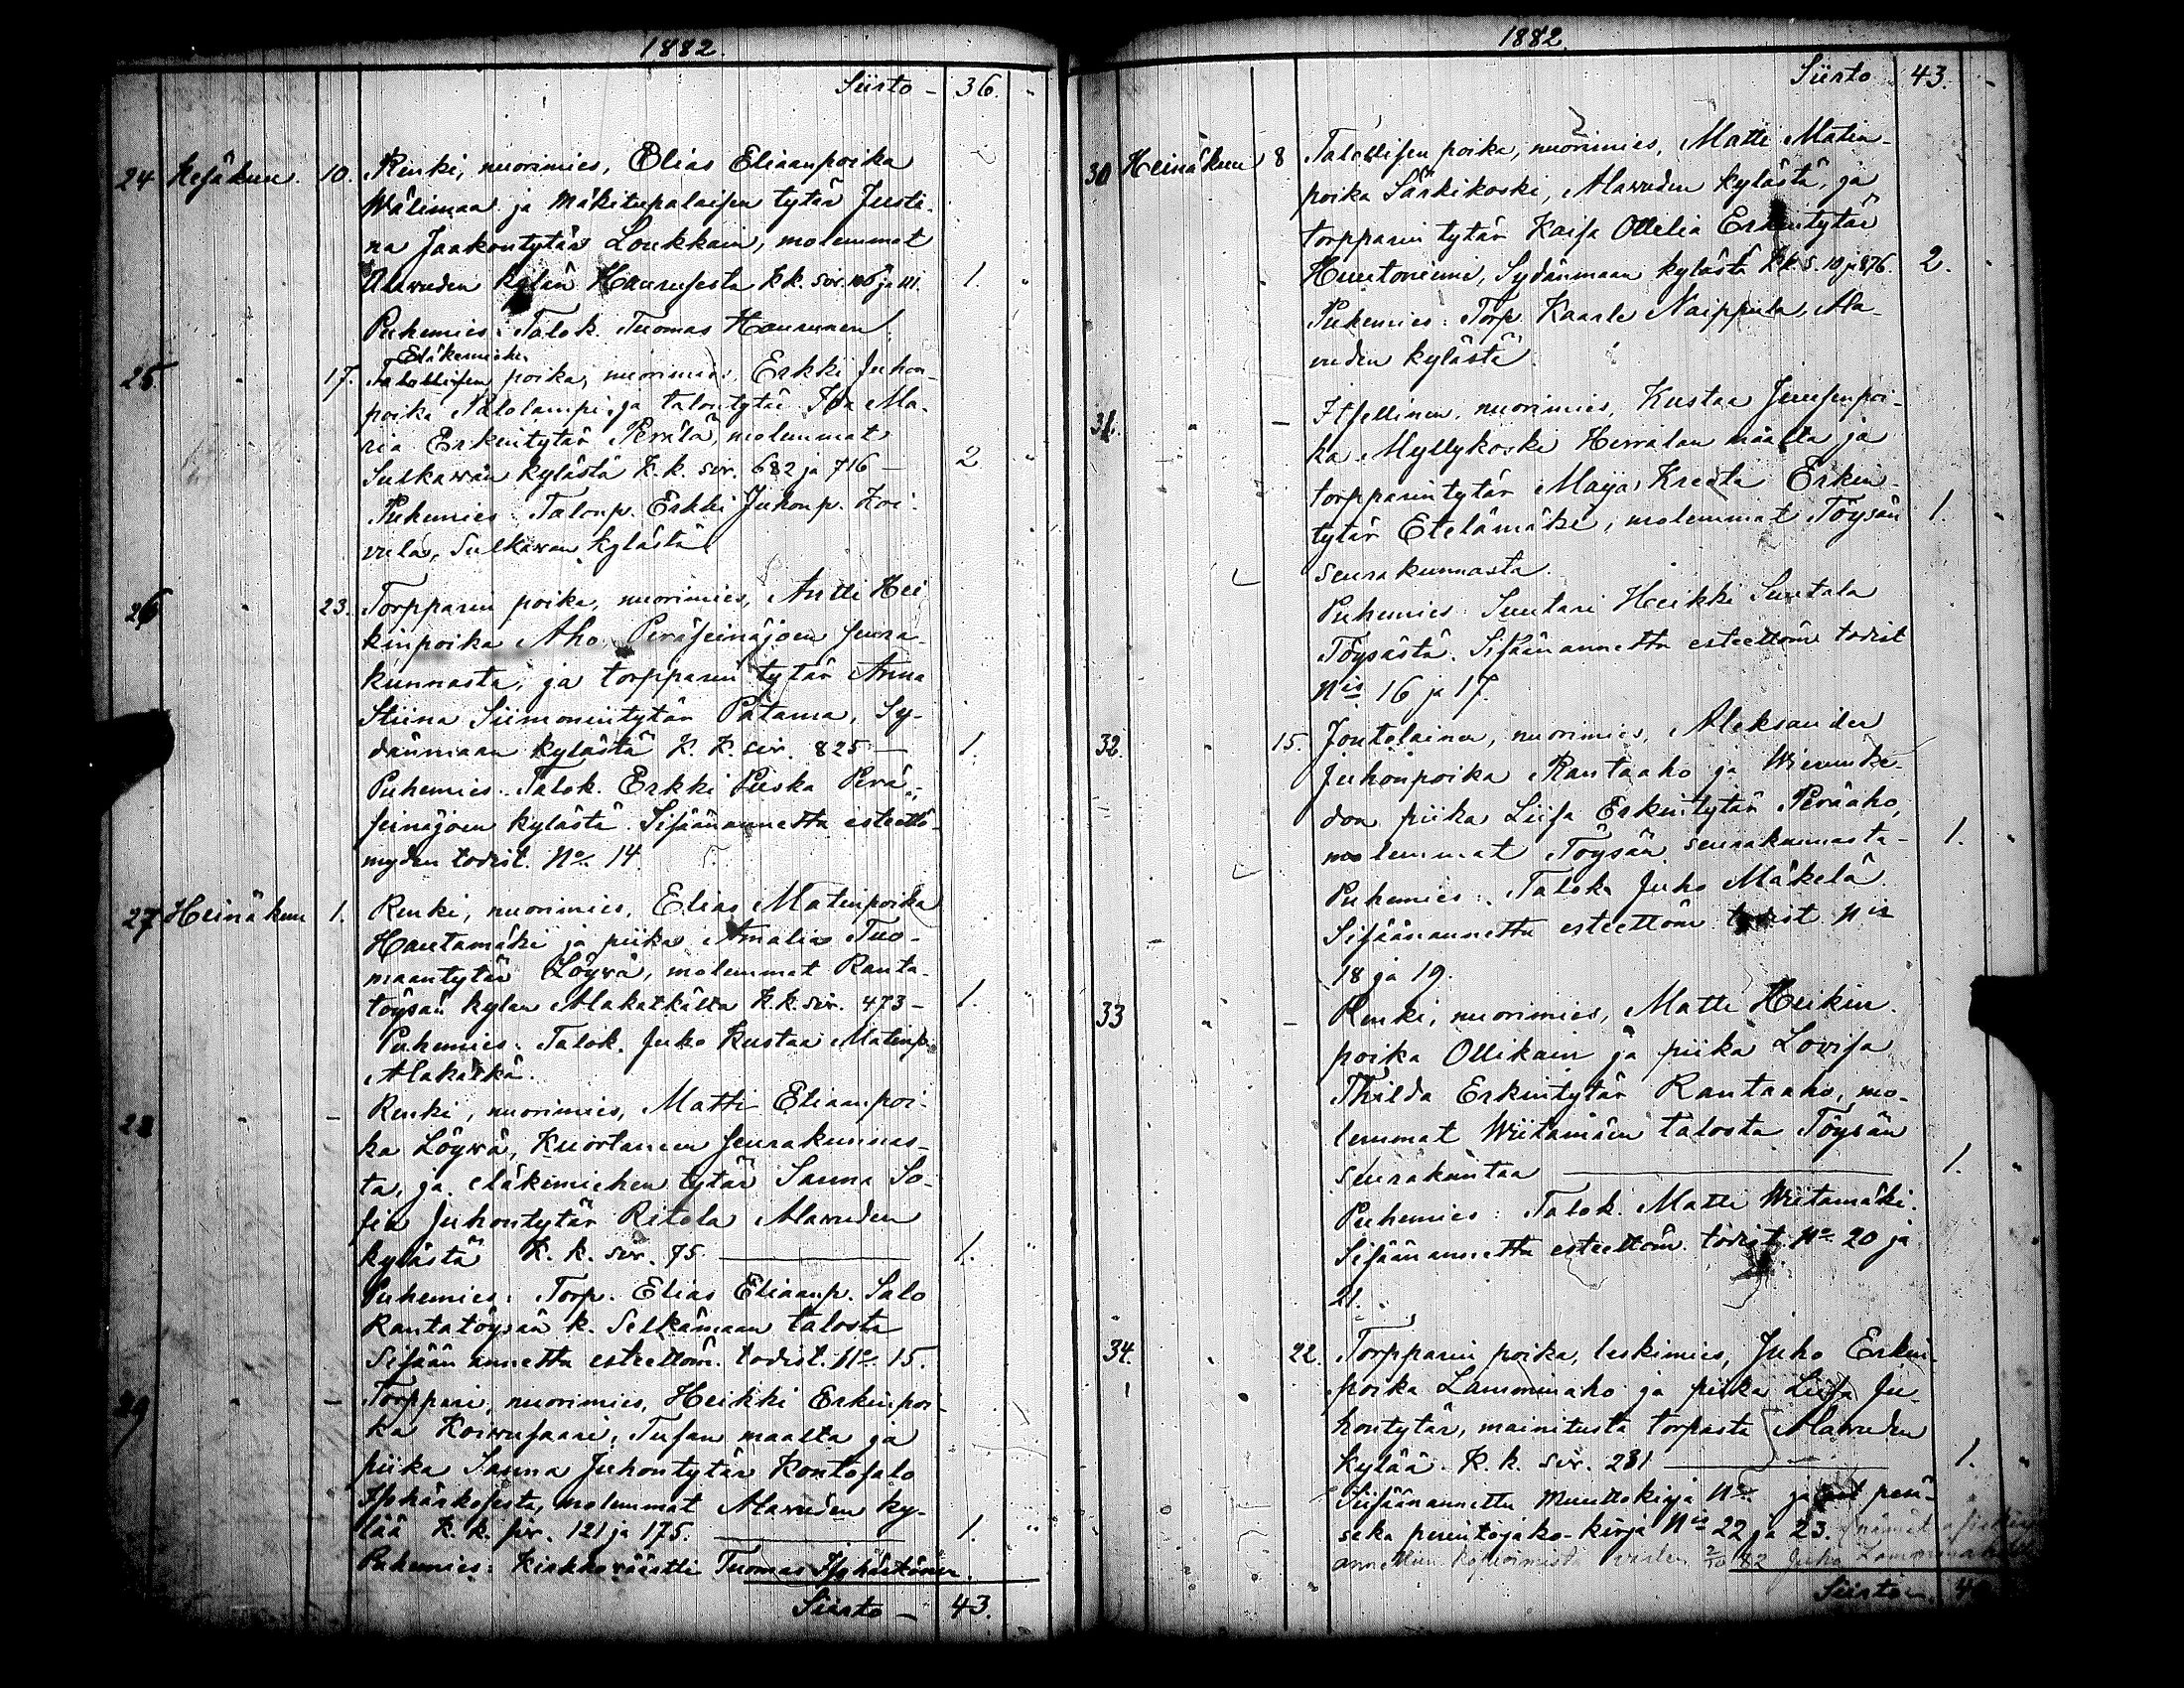 1882.
Siirto - 36.
24 Kesäkuu. 10. Renki, nuorimies, Elias Eliaanpoika
Wälimaa ja Mäkitupalaisen tytär Justi-
na Jaakontytär Loukkain, molemmat
Alavuden kylän Haurusesta k.k. siv. 106 ja 111. 1.
Puhemies: Talok. Tuomas Haurunen.
Eläkemiehen
25 " 17. Talollisen poika, nuorimies, Erkki Juhon-
poika Palolampi, ja talontytär Ida Ma-
ria Erkintytär Perälä, molemmat
Sulkawan kylästä K.k. siv. 682 ja 716 - 2
Puhemies: Talonp. Erkki Juhonp. Koi-
vula, Sulkawan kylästä
26 " 23. Torpparin poika, nuorimies, Antti Hei
kinpoika Aho, Peräseinäjoen seura-
kunnasta, ja torpparin tytär Anna
Stiina Siimonintytär Patama, Sy-
dänmaan kylästä K. k. siv. 825 - 1.
Puhemies: Talok. Erkki Puska Perä-
seinäjoen kylästä. Sisäänannettu esteettö-
myden todist. No. 14.
27 Heinäkuu 1. Renki, nuorimies, Elias Matinpoika
Hautamäki ja piika Amalia Tuo-
maantytär Löywä, molemmat Ranta-
töysän kylän Alakatkälta K.k. siv. 473 - 1.
Puhemies: Talok. Juho Kustaa Matinp.
Alakatkä.
28 " - Renki, nuorimies, Matti Eliaanpoi-
ka Löywä, Kuortaneen seurakunnas-
ta, ja eläkemiehen tytär Sanna So-
fia Juhontytär Ritola Alawuden
kylästä K. k. siv. 75. 1.
Puhemies: Torp. Elias Eliaanp. Salo
Rantatöysän k. Selkämaan talosta
Sisään annettu esteettöm. todist. No. 15.
29 " - Torppari, nuorimies, Heikki Erkinpoi-
ka Koiwusaari, Tusan maalta ja
piika Sanna Juhontytär Kontosalo
molemmat Alawuden ky-
lää K. k. siv. 121 ja 175. 1.
Puhemies: Kirkkoräätti Tuomas
Siirto - 43.
1882
Siirto 43.
30 Heinäkuu 8 Talollisen poika, nuorimies, Matti Matin-
poika Särkikoski, Alawuden kylästä, ja
torpparin tytär Kaisa Ottelia Erkintytär
Huutoniemi, Sydänmaan kylästä k.k. s. 10 ja 876. 2.
Puhemies: Torp. Kaarle Naippula, Ala-
vuden kylästä.
31. " - Itsellinen, nuorimies, Kustaa Juusenpoi-
ka Myllykoski Herralan maalta ja
torpparintytär Maija Kreeta Erkin-
tytär Etelämäki, molemmat Töysän 1.
seurakunnasta.
Puhemies: Suutari Heikki Suutala
Töysästä. Sisäänannettu esteettöm. todist
Nis 16 ja 17.
32. " 15. Joutolainen, nuorimies, Aleksander
Juhonpoika Rantaaho ja
don piika Liisa Erkintytär Peräaho,
molemmat Töysän seurakunnasta - 1.
Puhemies: Talok. Juho Mäkelä.
Sisäänannettu esteettöm. todist Nis
18 ja 19.
33 " - Renki, nuorimies, Matti Heikin
poika Ollikain ja piika Lovisa
Thilda Erkintytär Rantaaho, mo-
lemmat Wiitamäen talosta Töysän
seurakuntaa 1.
Puhemies: Talok. Matti Wiitamäki.
Sisäänannettu esteettöm. todist. No. 20 ja
21.
34. " 22. Torpparin poika, leskimies, Juho Erkin-
poika Lamminaho ja piika Liisa Ju-
hontytär, mainitusta torpasta Alawuden
kylää. K. k. siv. 281 1.
Sisäänannettu muuttokirja No. ja
seka perintöjako-kirja Nis 22 ja 23.
82 Juho Lamminaho
Siirto -